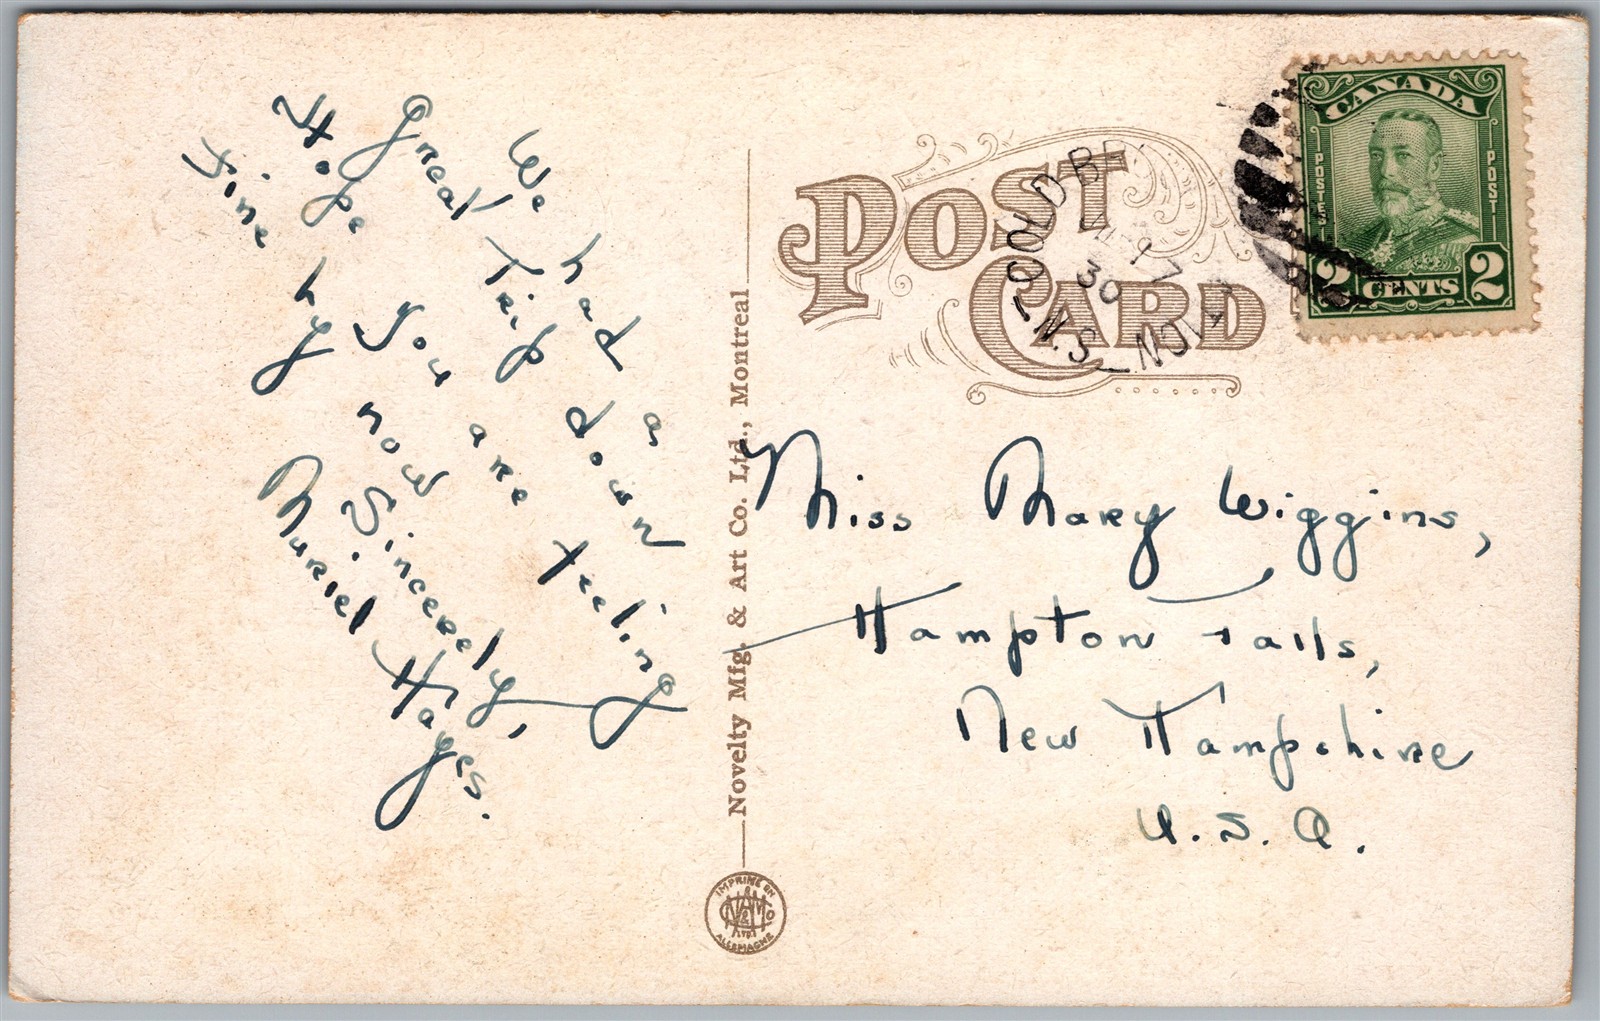 We had a
Great Trip down
Hope you are feeling
Fine by now
Sincerely,
Muriel Hayes.
Novelty Mfg. & Art Co. Ltd., Montreal
IMPRIMÉ EN
ALLEMAGNE
POST CARD
30
17
N.S.
CANADA
POSTES
POST
2 CENTS 2
Miss Mary Wiggins,
Hampton Falls,
New Hampshire
U.S.A.